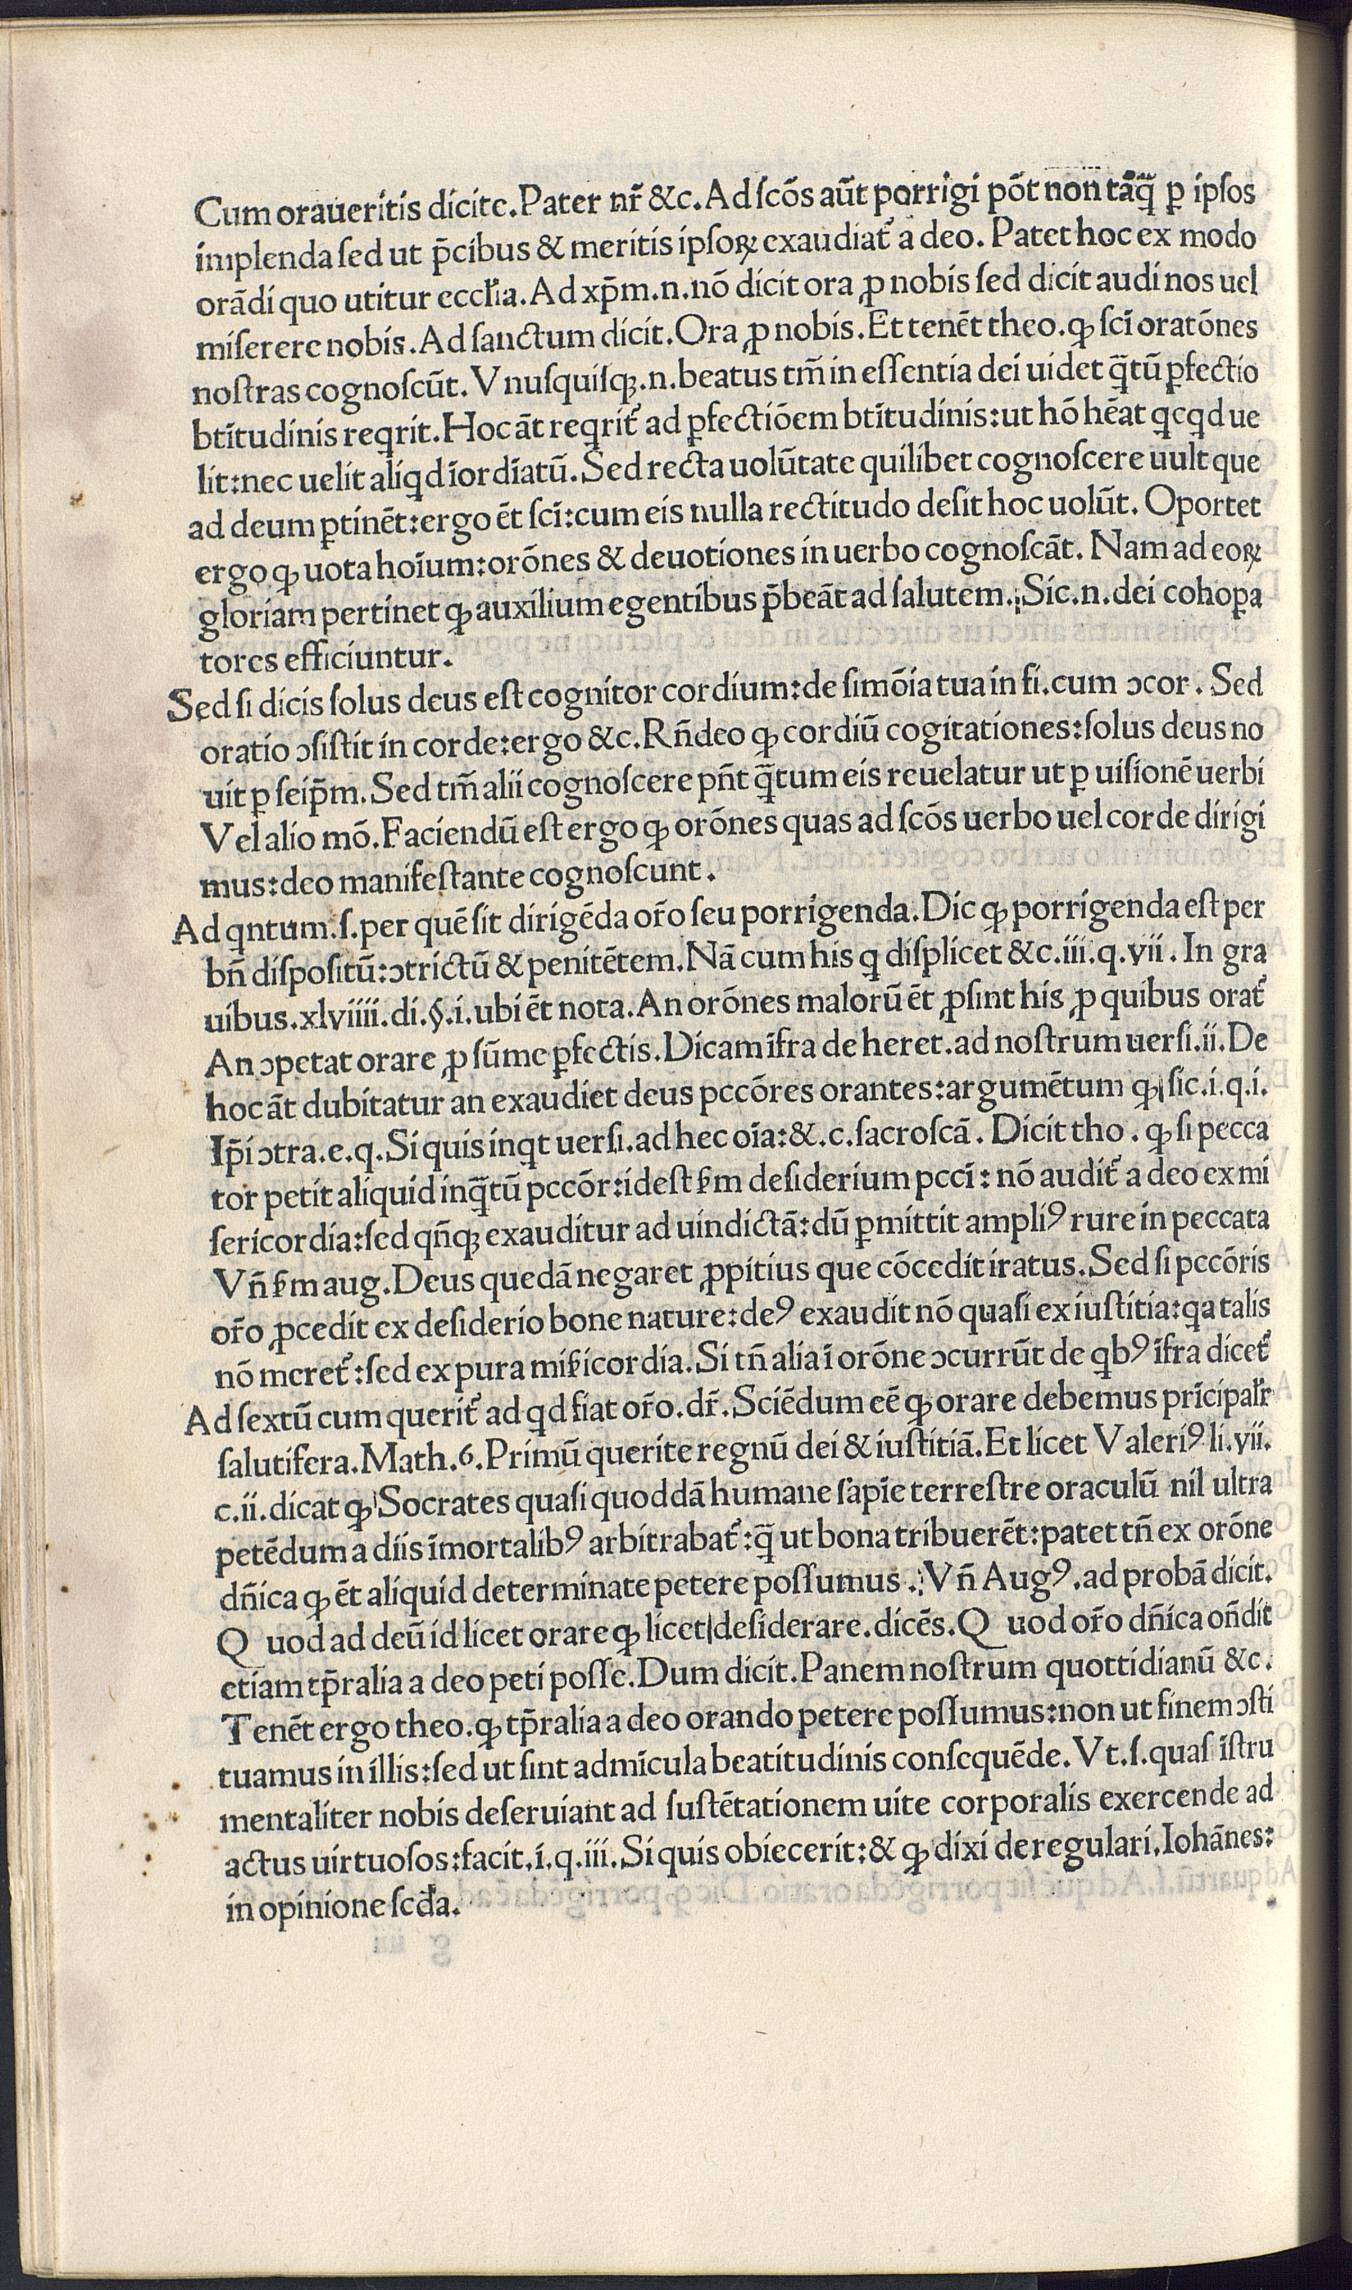 Cum oraueritis dicite. Pater nr̄ &c. Ad ſcōs aūt porrigi pōt non tāq̄ ꝑ ipſos
implenda ſed ut p̄cibus & meritis ipſoꝝ exaudiat᷑ a deo. Patet hoc ex modo
orādi quo utitur eccl̄ia. Ad xp̄m .n. nō dicit ora ꝓ nobis ſed dicit audi nos uel
miſerere nobis. Ad ſanctum dicit. Ora ꝓ nobis. Et tenēt theo. ꝙ ſcī oratōnes
noſtras cognoſcūt. Vnuſquiſqꝫ .n. beatus tm̄ in eſſentia dei uidet q̄tū ꝑfectio
btītudinis reqrit. Hoc āt reqrit᷑ ad ꝑfectiōem btītudinis: ut hō hēat qcqd ue
lit: nec uelit aliqd īordīatū. Sed recta uolūtate quilibet cognoſcere uult que
ad deum ꝑtinēt: ergo ēt ſcī: cum eis nulla rectitudo deſit hoc uolūt. Oportet
ergo ꝙ uota hoīum: orōnes & deuotiones in uerbo cognoſcāt. Nam ad eoꝝ
gloriam pertinet ꝙ auxilium egentibus p̄beāt ad ſalutem. Sic .n. dei cohoꝑa
tores efficiuntur.
Sed ſi dicis ſolus deus eſt cognitor cordium: de ſimōia tua in fi. cum ↄcor. Sed
oratio ↄſiſtit in corde: ergo &c. Rn̄deo ꝙ cordiū cogitationes: ſolus deus no
uit ꝑ ſeip̄m. Sed tm̄ alii cognoſcere pn̄t q̄tum eis reuelatur ut ꝑ uiſionē uerbi
Vel alio mō. Faciendū eſt ergo ꝙ orōnes quas ad ſcōs uerbo uel corde dirigi
mus: deo manifeſtante cognoſcunt.
Ad qntum .ſ. per quē ſit dirigēda or̄o ſeu porrigenda. Dic ꝙ porrigenda eſt per
bn̄ diſpoſitū: ↄtrictū & penitētem. Nā cum his q diſplicet &c. iii. q. vii. In gra
uibus. xlviiii. di. §. i. ubi ēt nota. An orōnes malorū ēt ꝓſint his ꝓ quibus orat᷑
An ↄpetat orare ꝓ ſūme ꝑfectis. Dicam īfra de heret. ad noſtrum uerſi. ii. De
hoc āt dubitatur an exaudiet deus pccōres orantes: argumētum ꝙ ſic. i. q. i.
Ip̄i ↄtra. e. q. Si quis inqt uerſi. ad hec oīa: &. c. ſacroſcā. Dicit tho. ꝙ ſi pecca
tor petit aliquid inq̄tū pccōr: ideſt ẜm deſiderium pccī: nō audit᷑ a deo ex mi
ſericordia: ſed qn̄qꝫ exauditur ad uindictā: dū ꝑmittit ampliꝰ rure in peccata
Vn̄ ẜm aug. Deus quedā negaret ꝓpitius que cōcedit iratus. Sed ſi pccōris
or̄o ꝓcedit ex deſiderio bone nature: deꝰ exaudit nō quaſi ex iuſtitia: qa talis
nō meret᷑: ſed ex pura miẜicordia. Si tn̄ alia ī orōne ↄcurrūt de qbꝰ īfra dicet᷑
Ad ſextū cum querit᷑ ad qd fiat or̄o. dr̄. Sciēdum eē ꝙ orare debemus prīcipalr̄
ſalutifera. Math. 6. Primū querite regnū dei & iuſtitiā. Et licet Valeriꝰ li. vii.
c. ii. dicat ꝙ Socrates quaſi quoddā humane ſapīe terreſtre oraculū nil ultra
petēdum a diis īmortalibꝰ arbitrabat᷑: q̄ ut bona tribuerēt: patet tn̄ ex orōne
dn̄ica ꝙ ēt aliquid determinate petere poſſumus. Vn̄ Augꝰ. ad probā dicit.
Quod ad deū id licet orare ꝙ licet deſiderare. dicēs. Quod or̄o dn̄ica on̄dit
etiam tp̄ralia a deo peti poſſe. Dum dicit. Panem noſtrum quottidianū &c.
Tenēt ergo theo. ꝙ tp̄ralia a deo orando petere poſſumus: non ut finem ↄſti
tuamus in illis: ſed ut ſint admīcula beatitudinis conſequēde. Vt .ſ. quaſ īſtru
mentaliter nobis deſeruiant ad ſuſtētationem uite corporalis exercende ad
actus uirtuoſos: facit. i. q. iii. Si quis obiecerit: & ꝙ dixi de regulari. Iohānes:
in opinione ſcd̄a.